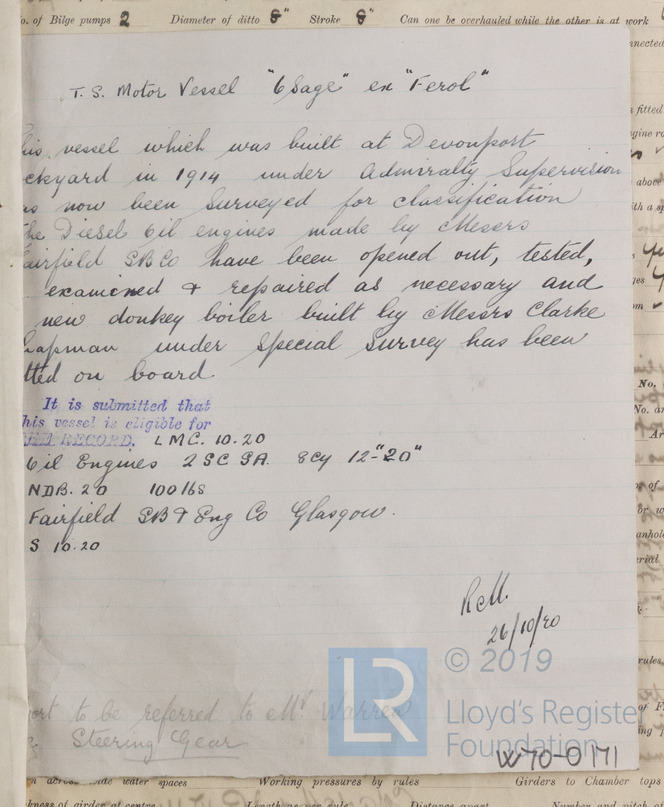 o. of Bilge pumps 2 Diameter of ditto 8" Stroke 8" Can one be overhauled while the other is at work
nnected
T.S. Motor Vessel "Osage" ex "Ferol"
his vessel which was built at Devonport
ckyard in 1914 under Admiralty Supervision
as now been Surveyed for classification
he Diesel Oil engines made by Messrs
airfield SB Co have been opened out, tested,
examined & repaired as necessary and
new donkey boiler built by Messrs Clarke
hapman under Special Survey has been
tted on board
It is submitted that
his vessel is eligible for
THE RECORD. LMC. 10.20
Oil Engines 2SC SA. 8Cy 12"-20"
NDB. 20 100 lbs
Fairfield SB & Eng Co Glasgow.
S 10.20
26/10/20
ort to be referred to Mr Warren
Steering Gear
© 2019
LR
Lloyd's Register
Foundation
W770-0171
across wide water spaces Working pressures by rules Girders to Chamber tops
kness of girder at centre Length as per rule Distance apart Number and pitch